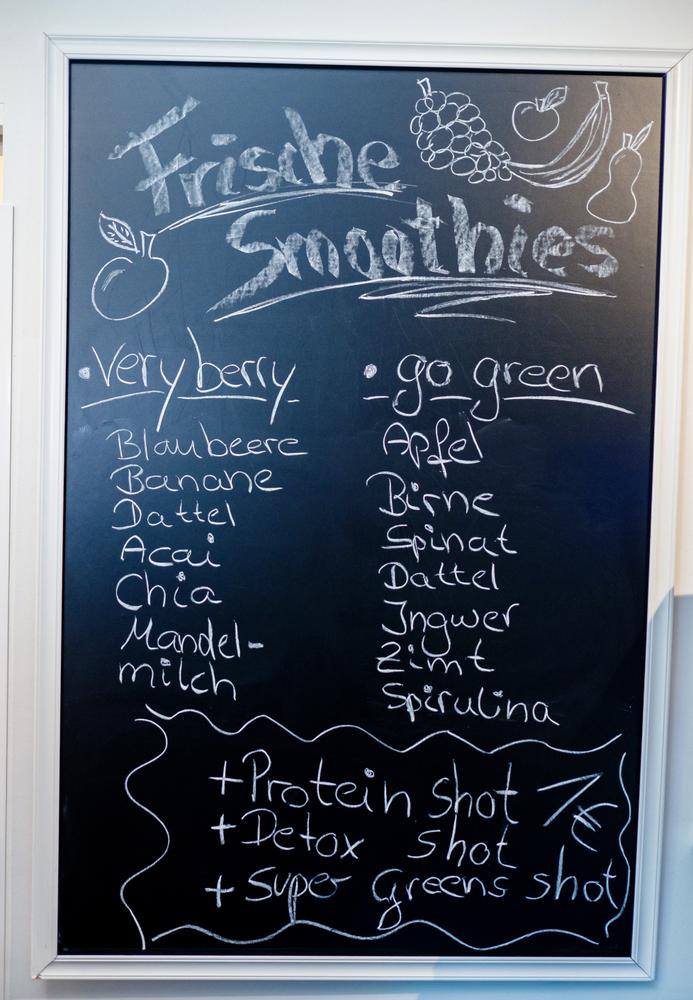 Frische
Smoothies
• Very berry
Blaubeere
Banane
Dattel
Acai
Chia
Mandel-
milch
• go green
Apfel
Birne
Spinat
Dattel
Ingwer
Zimt
Spirulina
+ Protein shot 1€
+ Detox shot
+ Super Greens shot